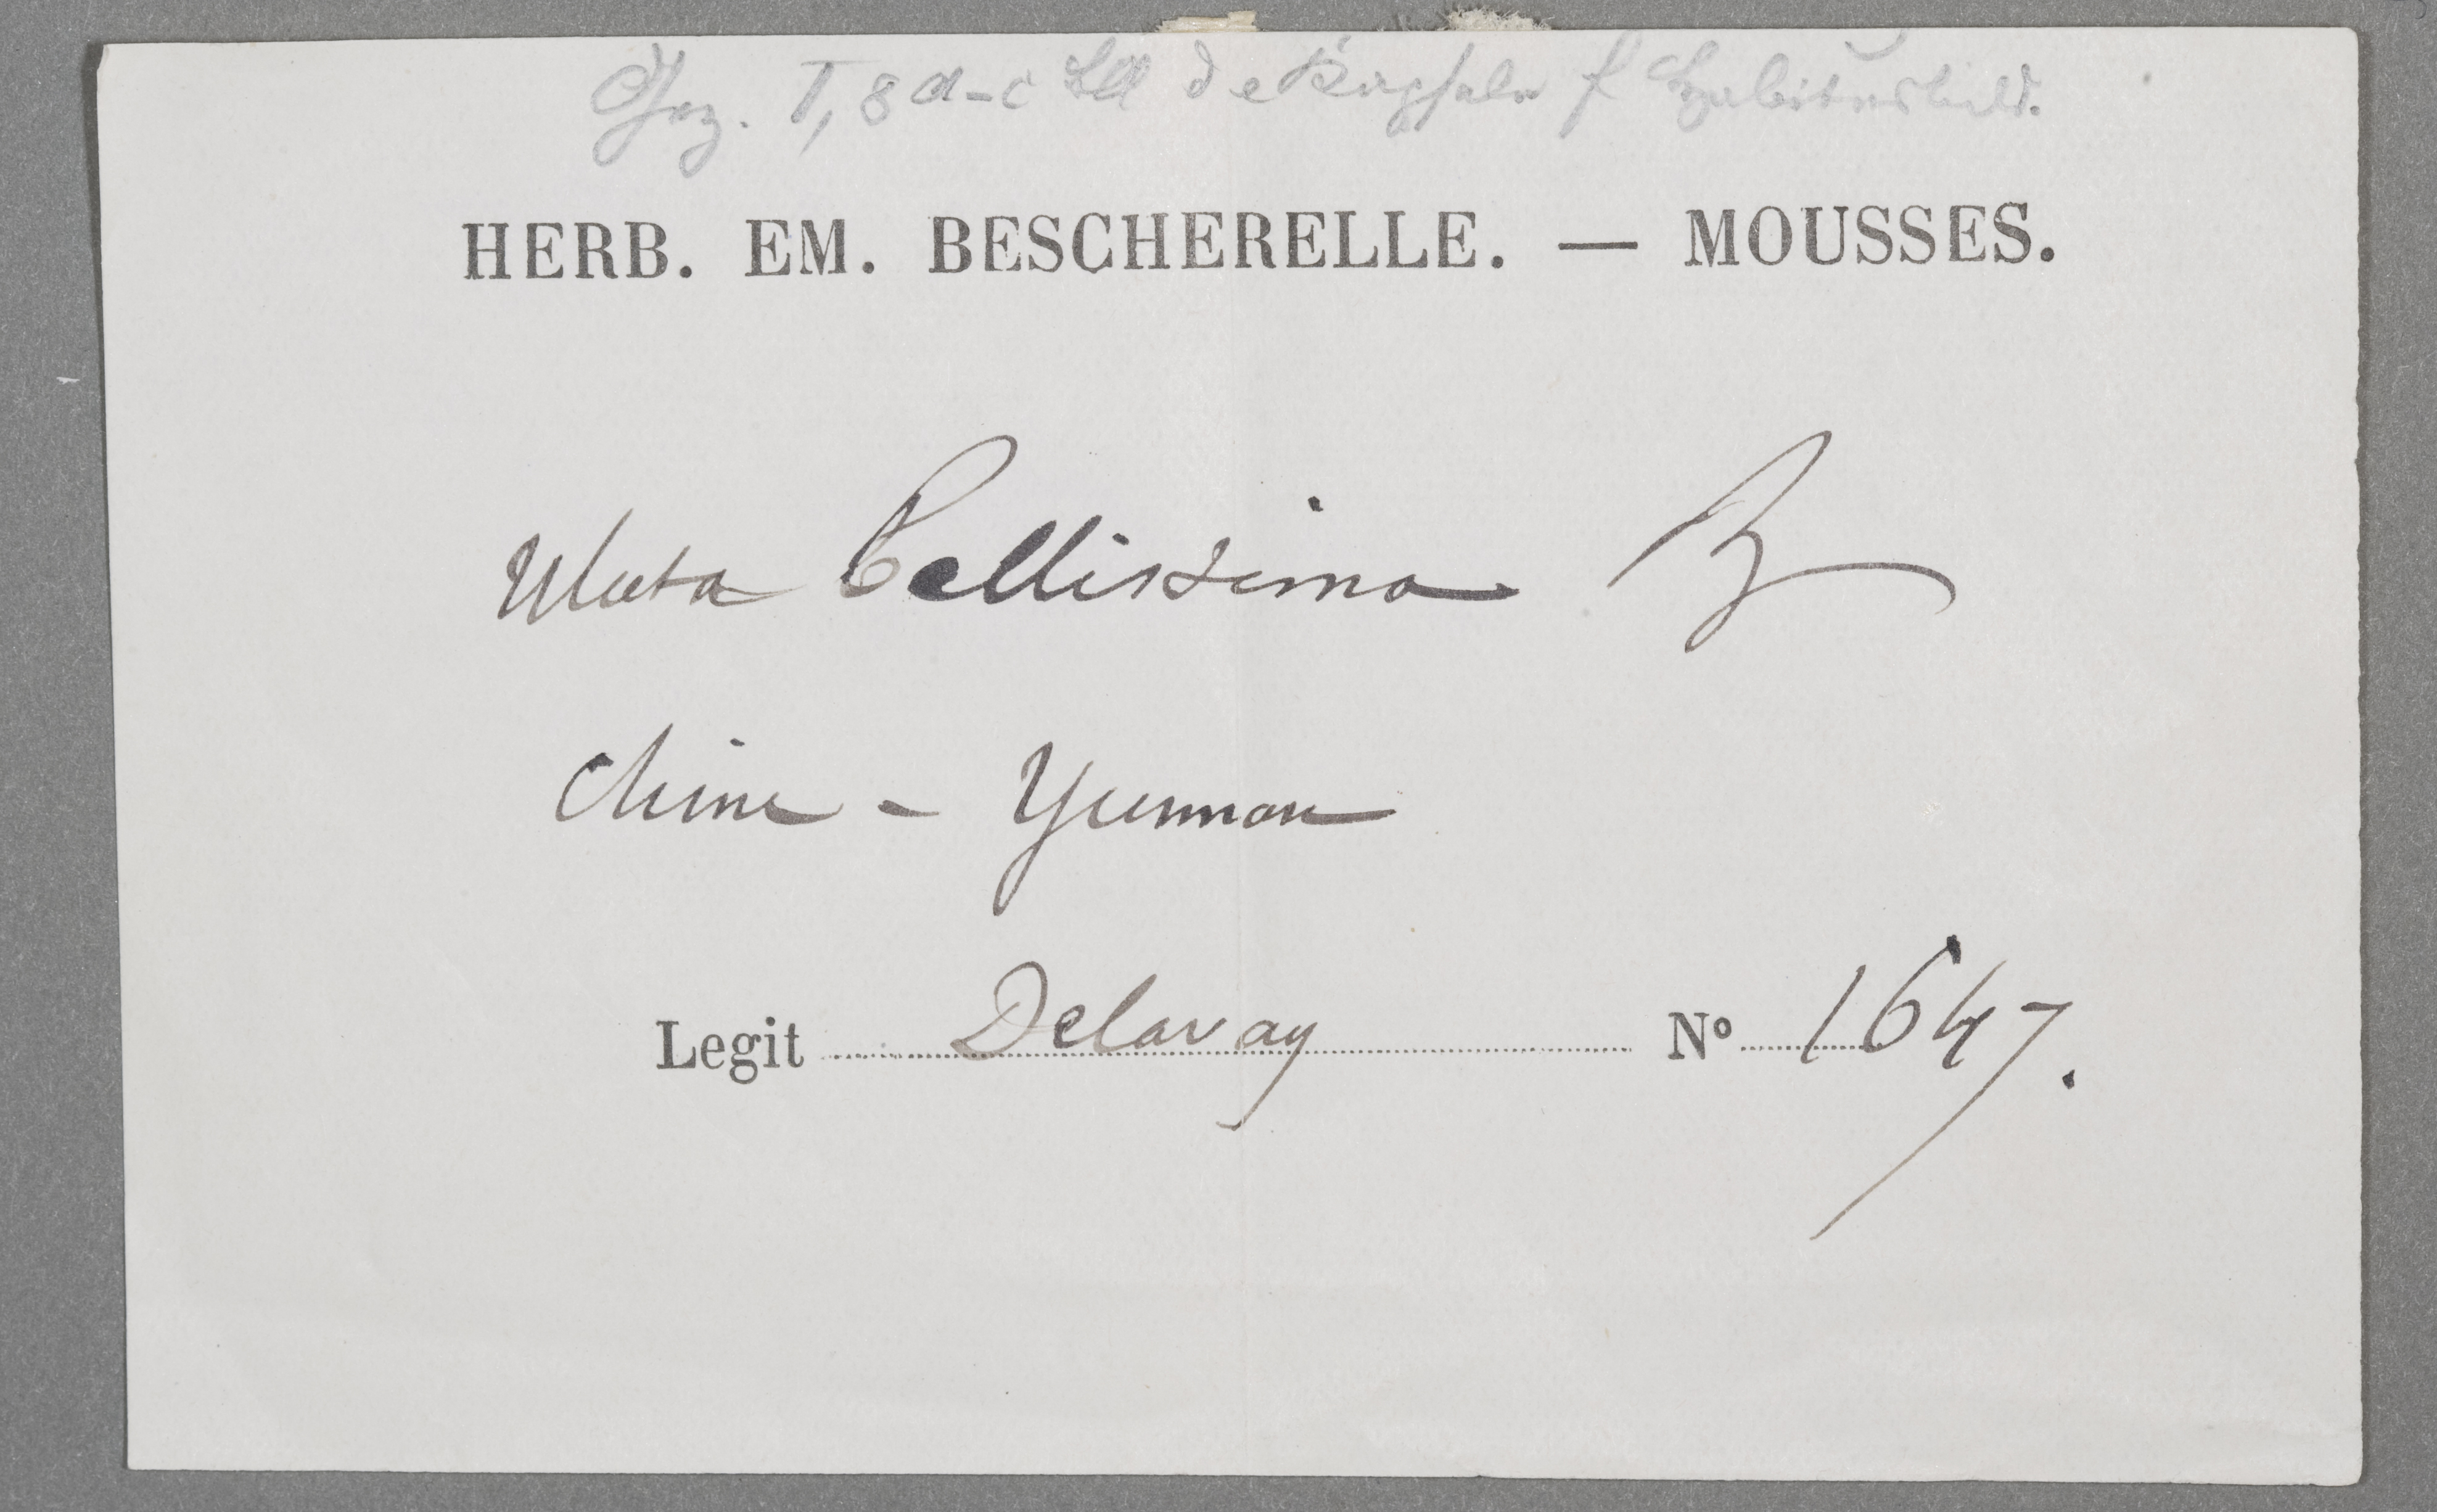 Gez. T, 8 a-c Bll d e Kapseln f Habitusbild.
HERB. EM. BESCHERELLE. — MOUSSES.
Ulota bellissima B
Chine - Yunnan
Legit Delavay Nº 1647.